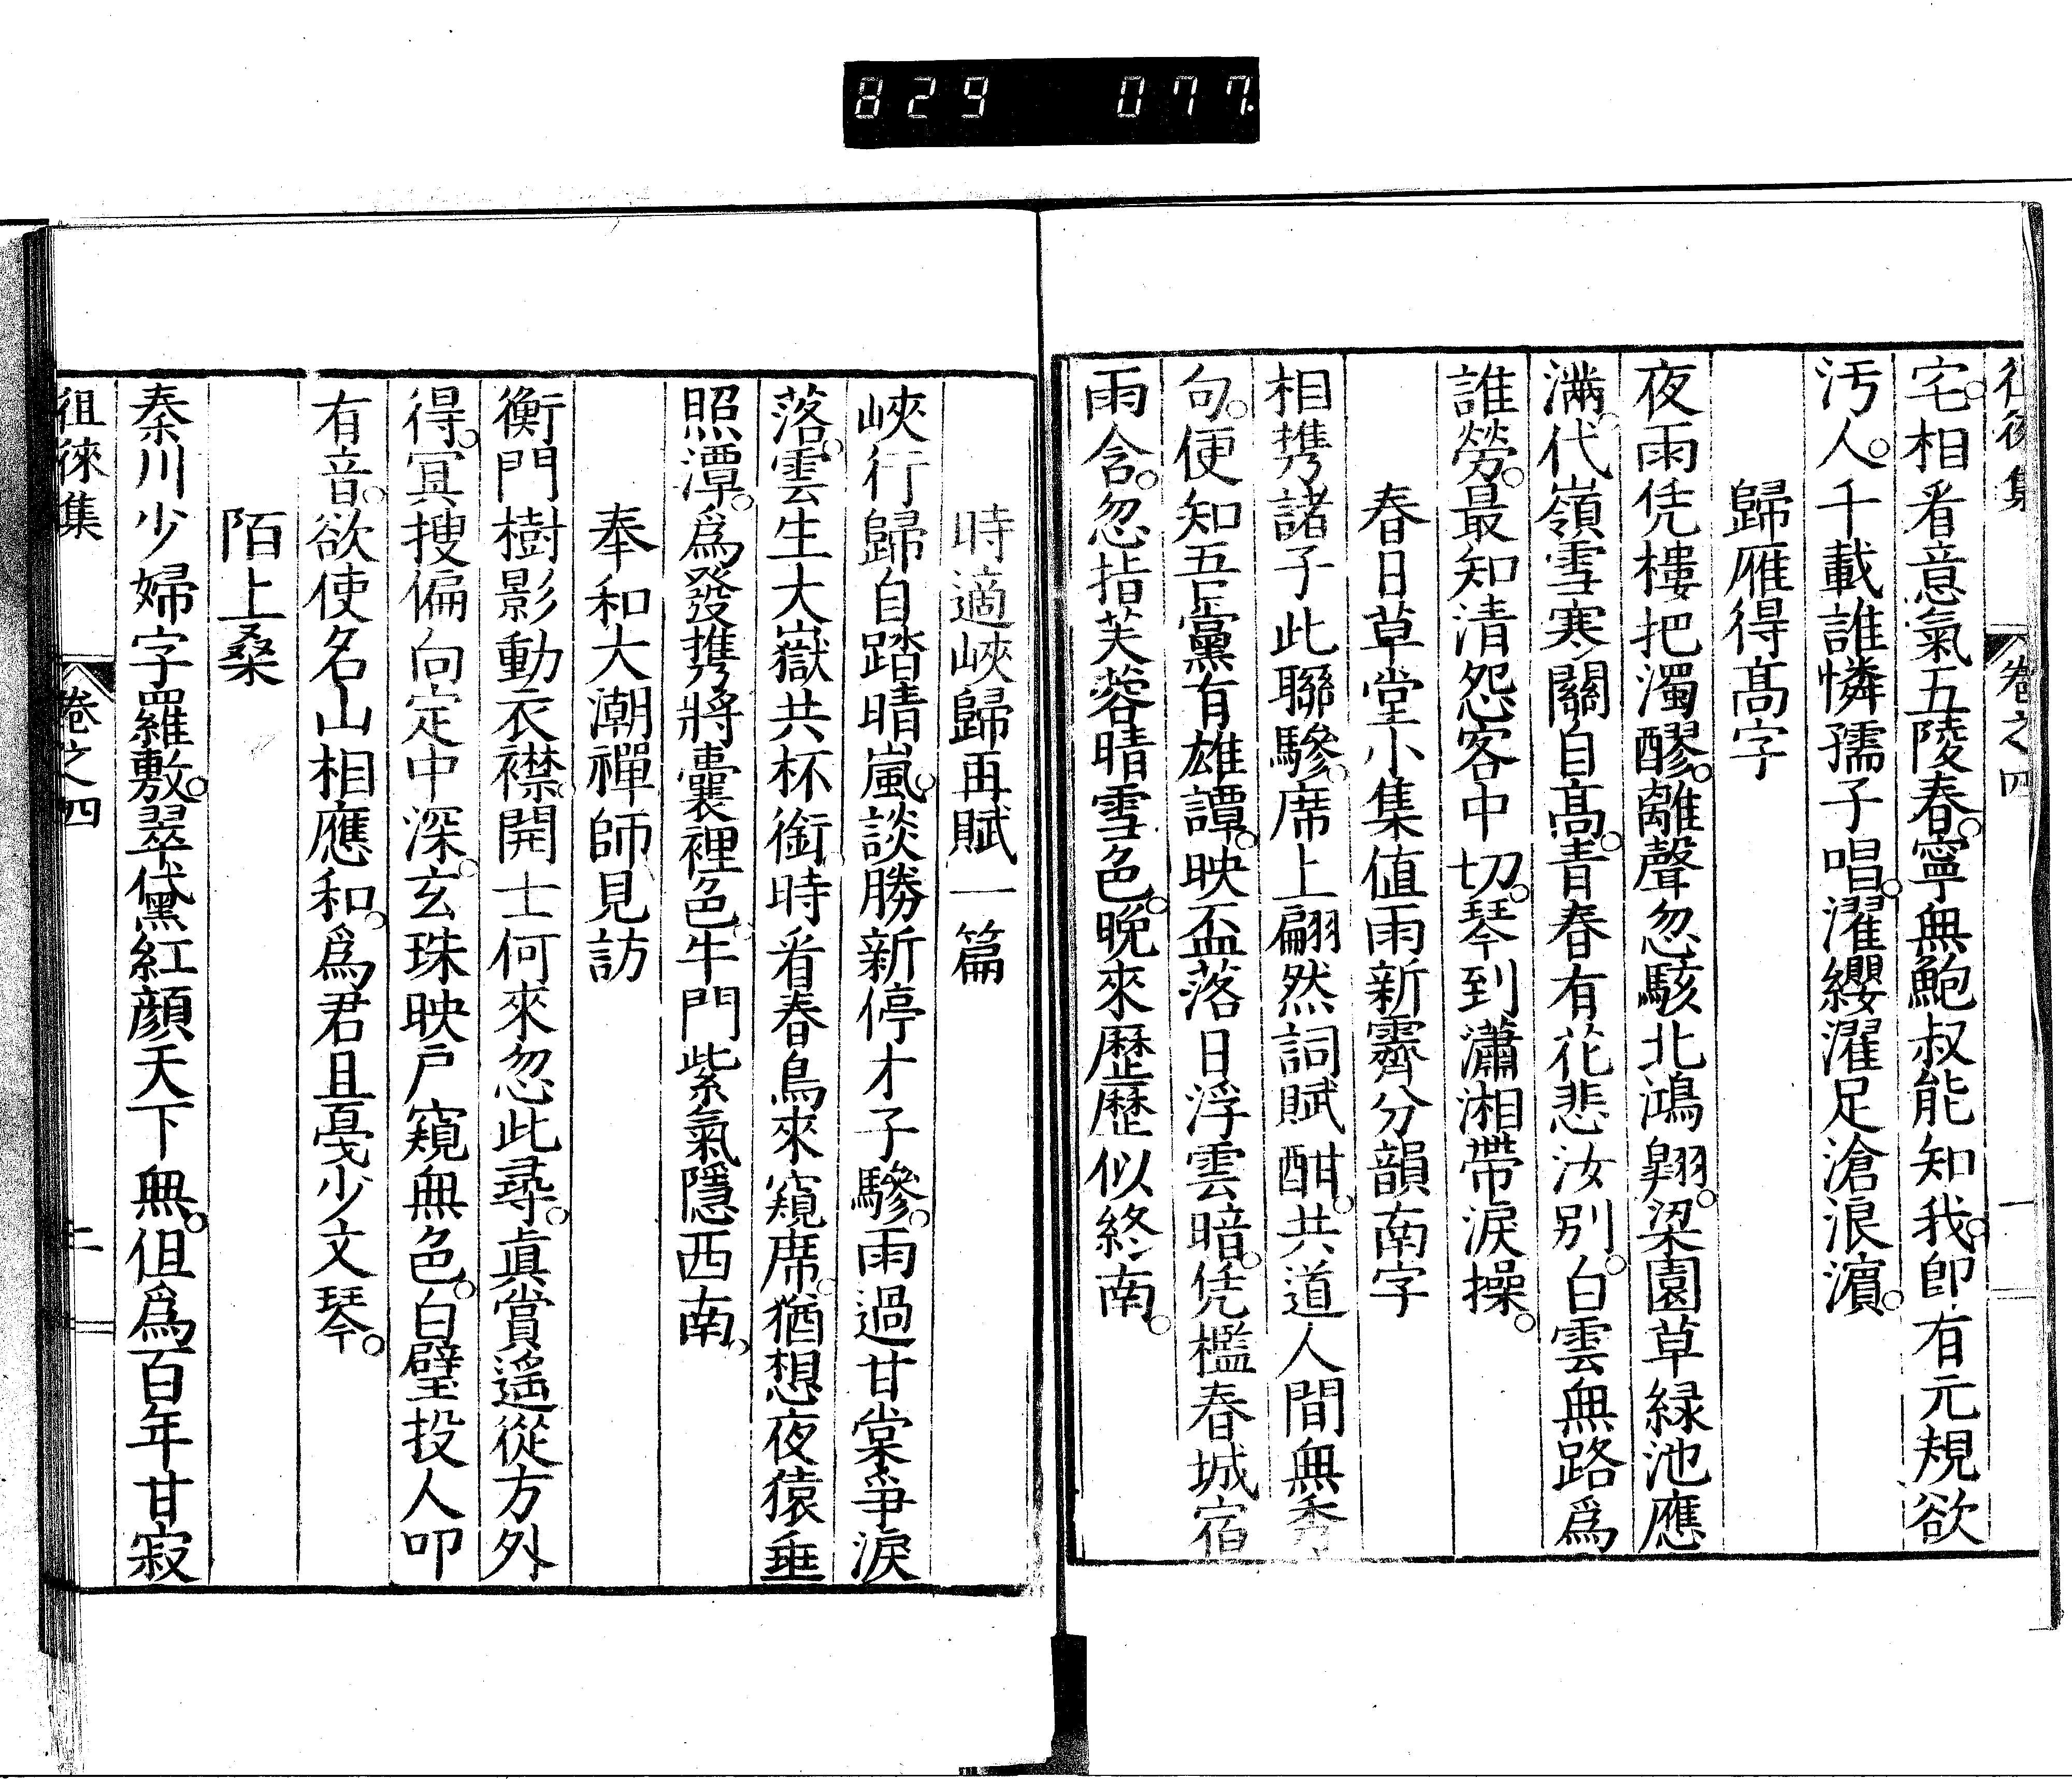 829 077.
徂徠集 卷之四 一
宅。相看意氣五陵春。寧無鮑叔能知我。卽有元規欲
汚人。千載誰憐孺子唱。濯纓濯足滄浪濵。
歸雁得髙字
夜雨凭樓把濁醪。離聲忽駭北鴻翺。梁園草緑池應
滿。代嶺雪寒關自髙。青春有花悲汝别。白雲無路爲
誰勞。最知清怨客中切。琴到瀟湘帶淚操。
春日草堂小集值雨新霽分韻南字
相携諸子此聯驂。席上翩然詞賦酣。共道人間無秀
句。便知吾黨有雄譚。映盃落日浮雲暗。凭檻春城宿
雨含。忽指芙蓉晴雪色。晩來歷歷似終南。
時適峽歸再賦一篇
峽行歸自踏晴嵐。談勝新停才子驂。雨過甘棠爭淚
落。雲生大嶽共杯銜。時看春鳥來窺席。猶想夜猿垂
照潭。爲發携將囊裡色。牛門紫氣隱西南。
奉和大潮禪師見訪
衡門樹影動衣襟。開士何來忽此尋。眞賞遥從方外
得。冥搜偏向定中深。玄珠映戸窺無色。白璧投人叩
有音。欲使名山相應和。爲君且戞少文琴。
陌上桑
秦川少婦字羅敷。翠黛紅顔天下無。但爲百年甘寂
徂徠集 卷之四 二